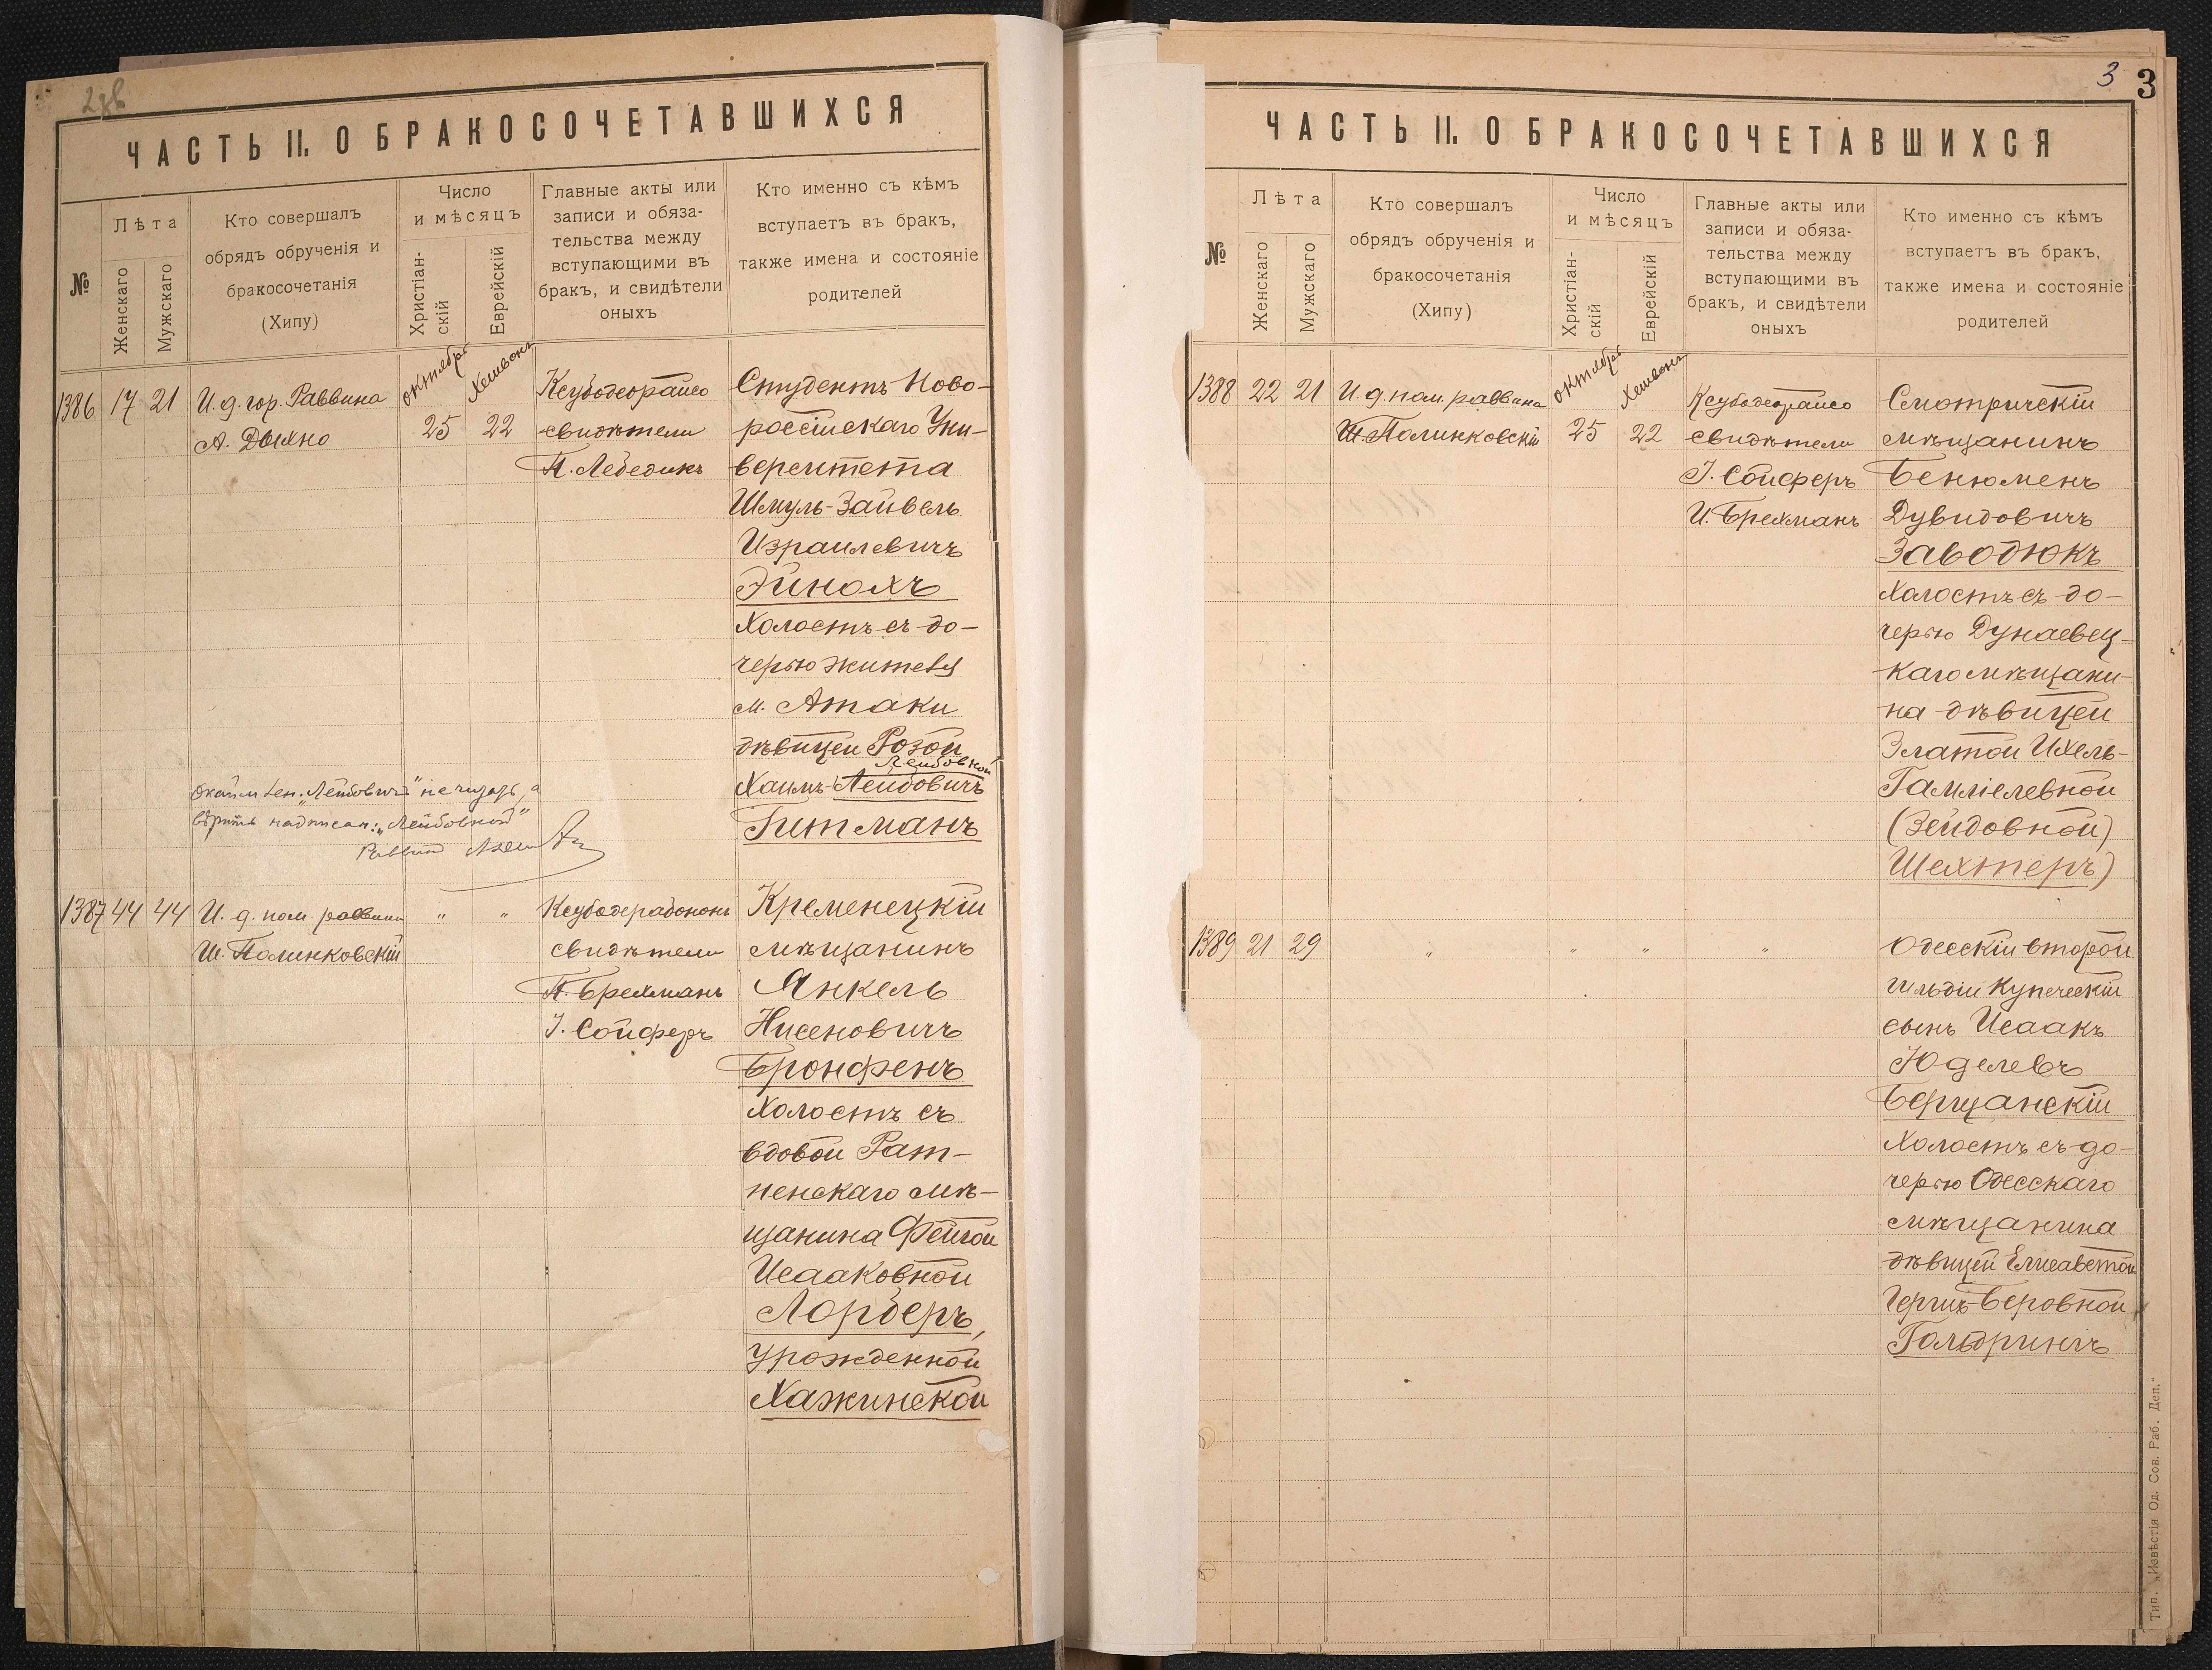 ЧАСТЬ II. О БРАКОСОЧЕТАВШИХСЯ
№
Лѣта
Женскаго
Мужскаго
Кто совершалъ
обрядъ обрученія и
бракосочетанія
(Хипу)
Число
и мѣсяцъ
Христіан-
скій
Еврейскій
Главные акты или
записи и обяза-
тельства между
вступающими въ
бракъ, и свидѣтели
оныхъ
Кто именно съ кѣмъ
вступаетъ въ бракъ,
также имена и состояніе
родителей
1386
17
21
И. д. гор. Раввина
А. Дыхно
октябрь
25
Хешвонъ
22
Ксубодеорайсо
свидѣтели
П. Лебедикъ
Студентъ Ново-
россійскаго Уни-
верситета
Шмуль-Зайвель
Израилевичъ
Эйнохъ
Холостъ съ до-
черью жителя
м. Атаки
дѣвицей Розой
Лейбовной
Хаимъ-Лейбовичъ
Гитманъ
"Лейбовичъ" не читать, а
вѣрить надписан: "Лейбовной"
1387
44
44
И. д. пом. раввина
Ш. Полинковскій
"
"
Ксубодерабононъ
свидѣтели
П. Брехманъ
І. Сойферъ
Кременецкій
мѣщанинъ
Янкель
Нисеновичъ
Бронфенъ
Холостъ съ
вдовой Рат-
ненскаго мѣ-
щанина Фейгой
Исааковной
Лорберъ,
урожденной
Хажинской
3
3
ЧАСТЬ II. О БРАКОСОЧЕТАВШИХСЯ
№
Лѣта
Женскаго
Мужскаго
Кто совершалъ
обрядъ обрученія и
бракосочетанія
(Хипу)
Число
и мѣсяцъ
Христіан-
скій
Еврейскій
Главные акты или
записи и обяза-
тельства между
вступающими въ
бракъ, и свидѣтели
оныхъ
Кто именно съ кѣмъ
вступаетъ въ бракъ,
также имена и состояніе
родителей
1388
22
21
И. д. пом. раввина
Ш. Полинковскій
октябрь
25
Хешвонъ
22
Ксубодеорайсо
свидѣтели
І. Сойферъ
И. Брехманъ
Смотричскій
мѣщанинъ
Бенюменъ
Дувидовичъ
Заводюкъ
Холостъ съ до-
черью Дунаевец-
каго мѣщани-
на дѣвицей
Златой Ихель-
Гамліелевной
(Зейдовной)
Шехтеръ)
1389
21
29
"
"
"
"
Одесскій второй
гильдіи купеческій
сынъ Исаакъ
Юделевъ
Берщанскій
Холостъ съ до-
черью Одесскаго
мѣщанина
дѣвицей Елисаветой
Гершъ-Беровной
Гольдрингъ
Тип. „Извѣстія Од. Сов. Раб. Деп."